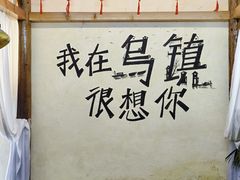 我在乌镇
很想你